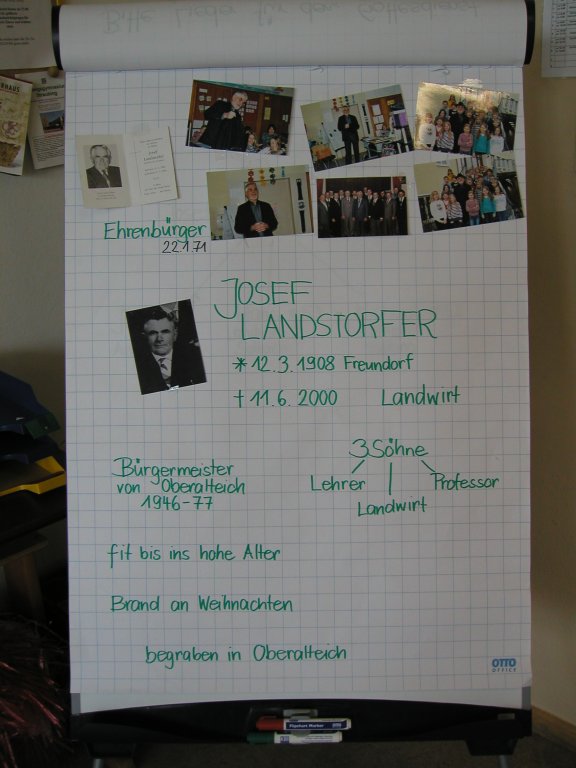 Bitte Lieder für den Gottesdienst
Ehrenbürger
22.1.71
JOSEF
LANDSTORFER
* 12.3.1908 Freundorf
† 11.6.2000 Landwirt
3 Söhne
Lehrer Professor
Landwirt
Bürgermeister
von Oberalteich
1946-77
fit bis ins hohe Alter
Brand an Weihnachten
begraben in Oberalteich
OTTO
OFFICE